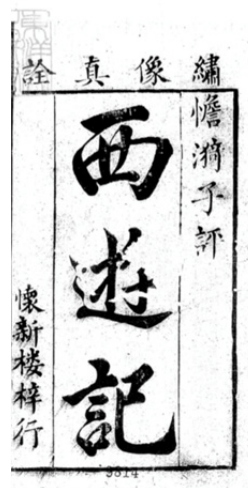 繡像真詮
憺漪子評
西遊記
懷新楼梓行
9814